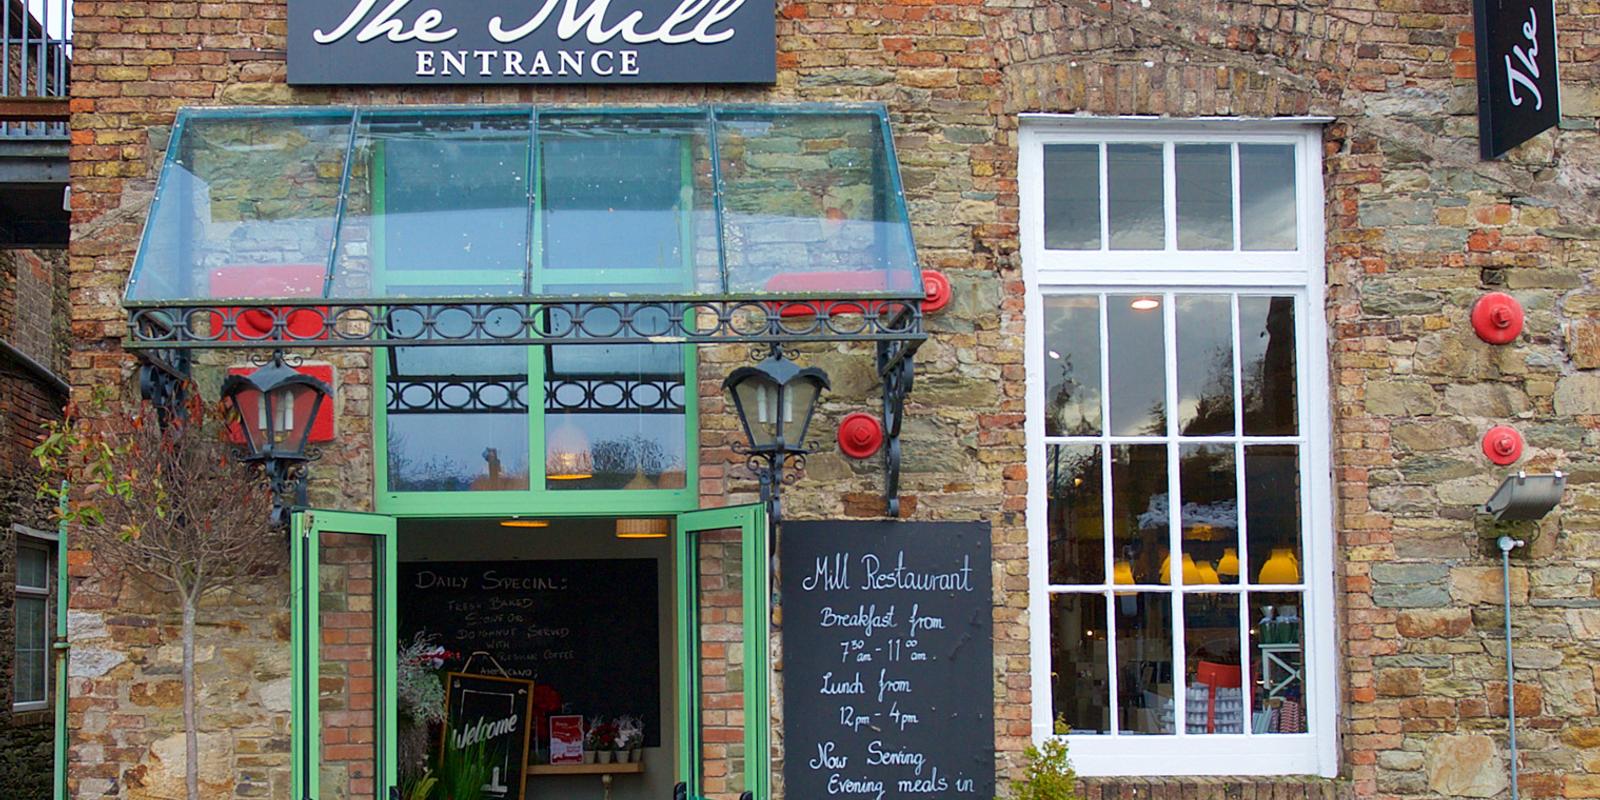 The Mill
ENTRANCE
The
DAILY SPECIAL:
FRESH BAKED
SCONE OR
DOUGHNUT SERVED
WITH
COFFEE
AMERICANO;
Welcome
Mill Restaurant
Breakfast from
7 30 am - 11 00 am.
Lunch from
12pm - 4pm
Now Serving
Evening meals in